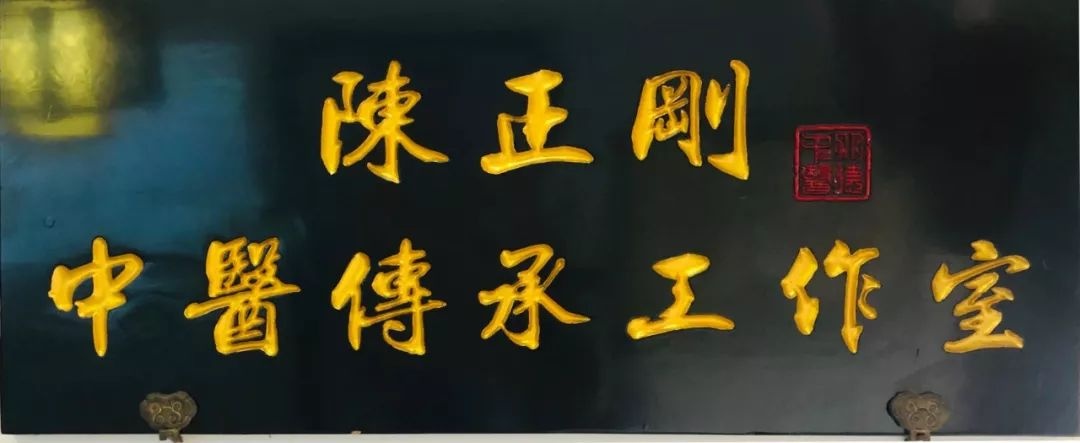 陳正剛
中醫傳承工作室